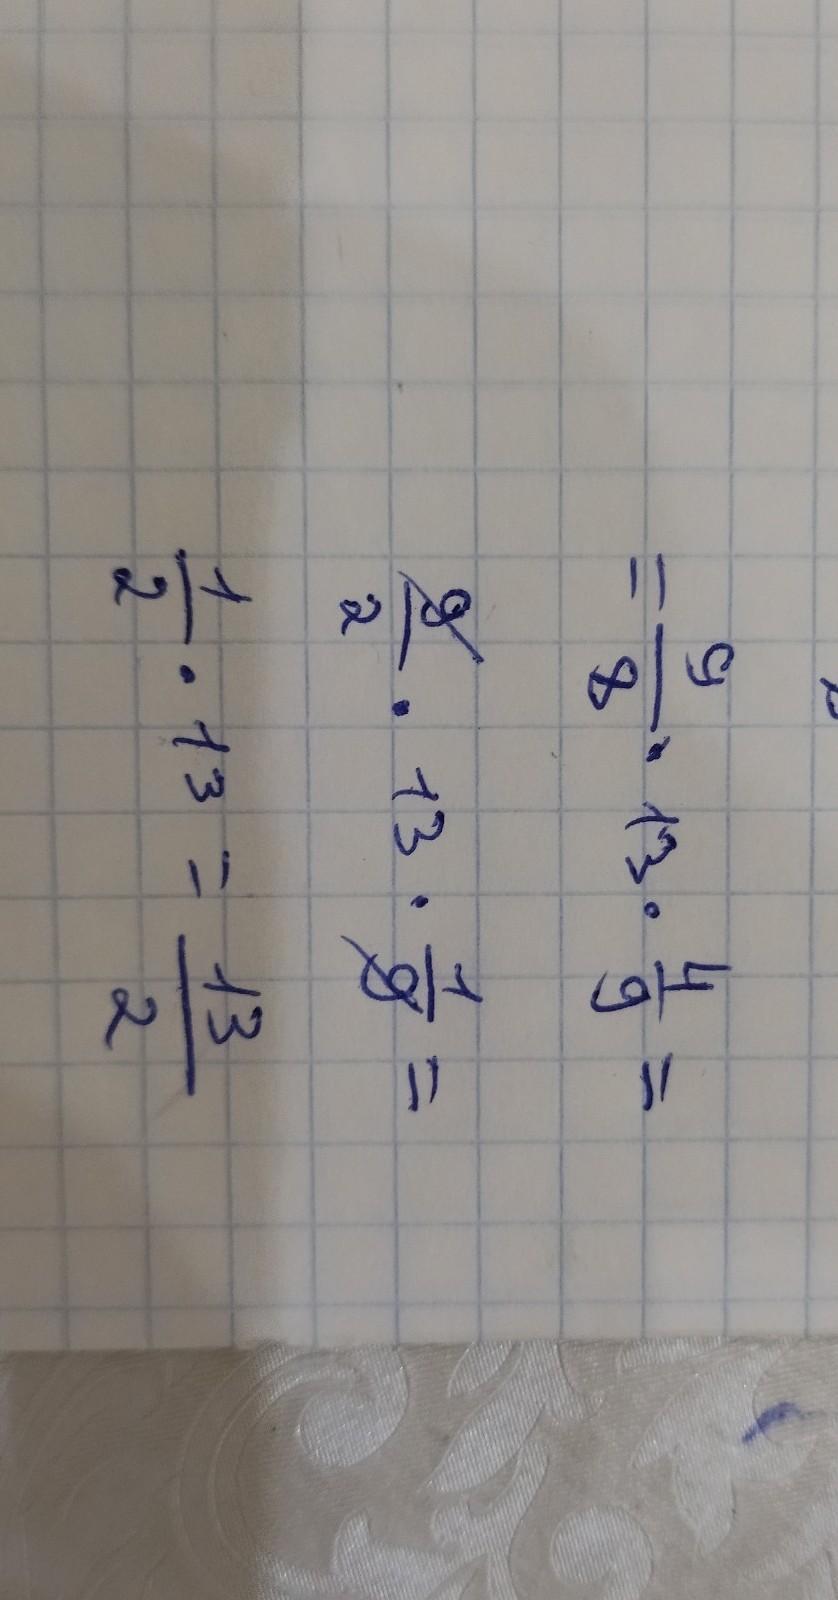 = 9/8 · 13 · 4/9 =
9/2 · 13 · 1/9 =
1/2 · 13 = 13/2